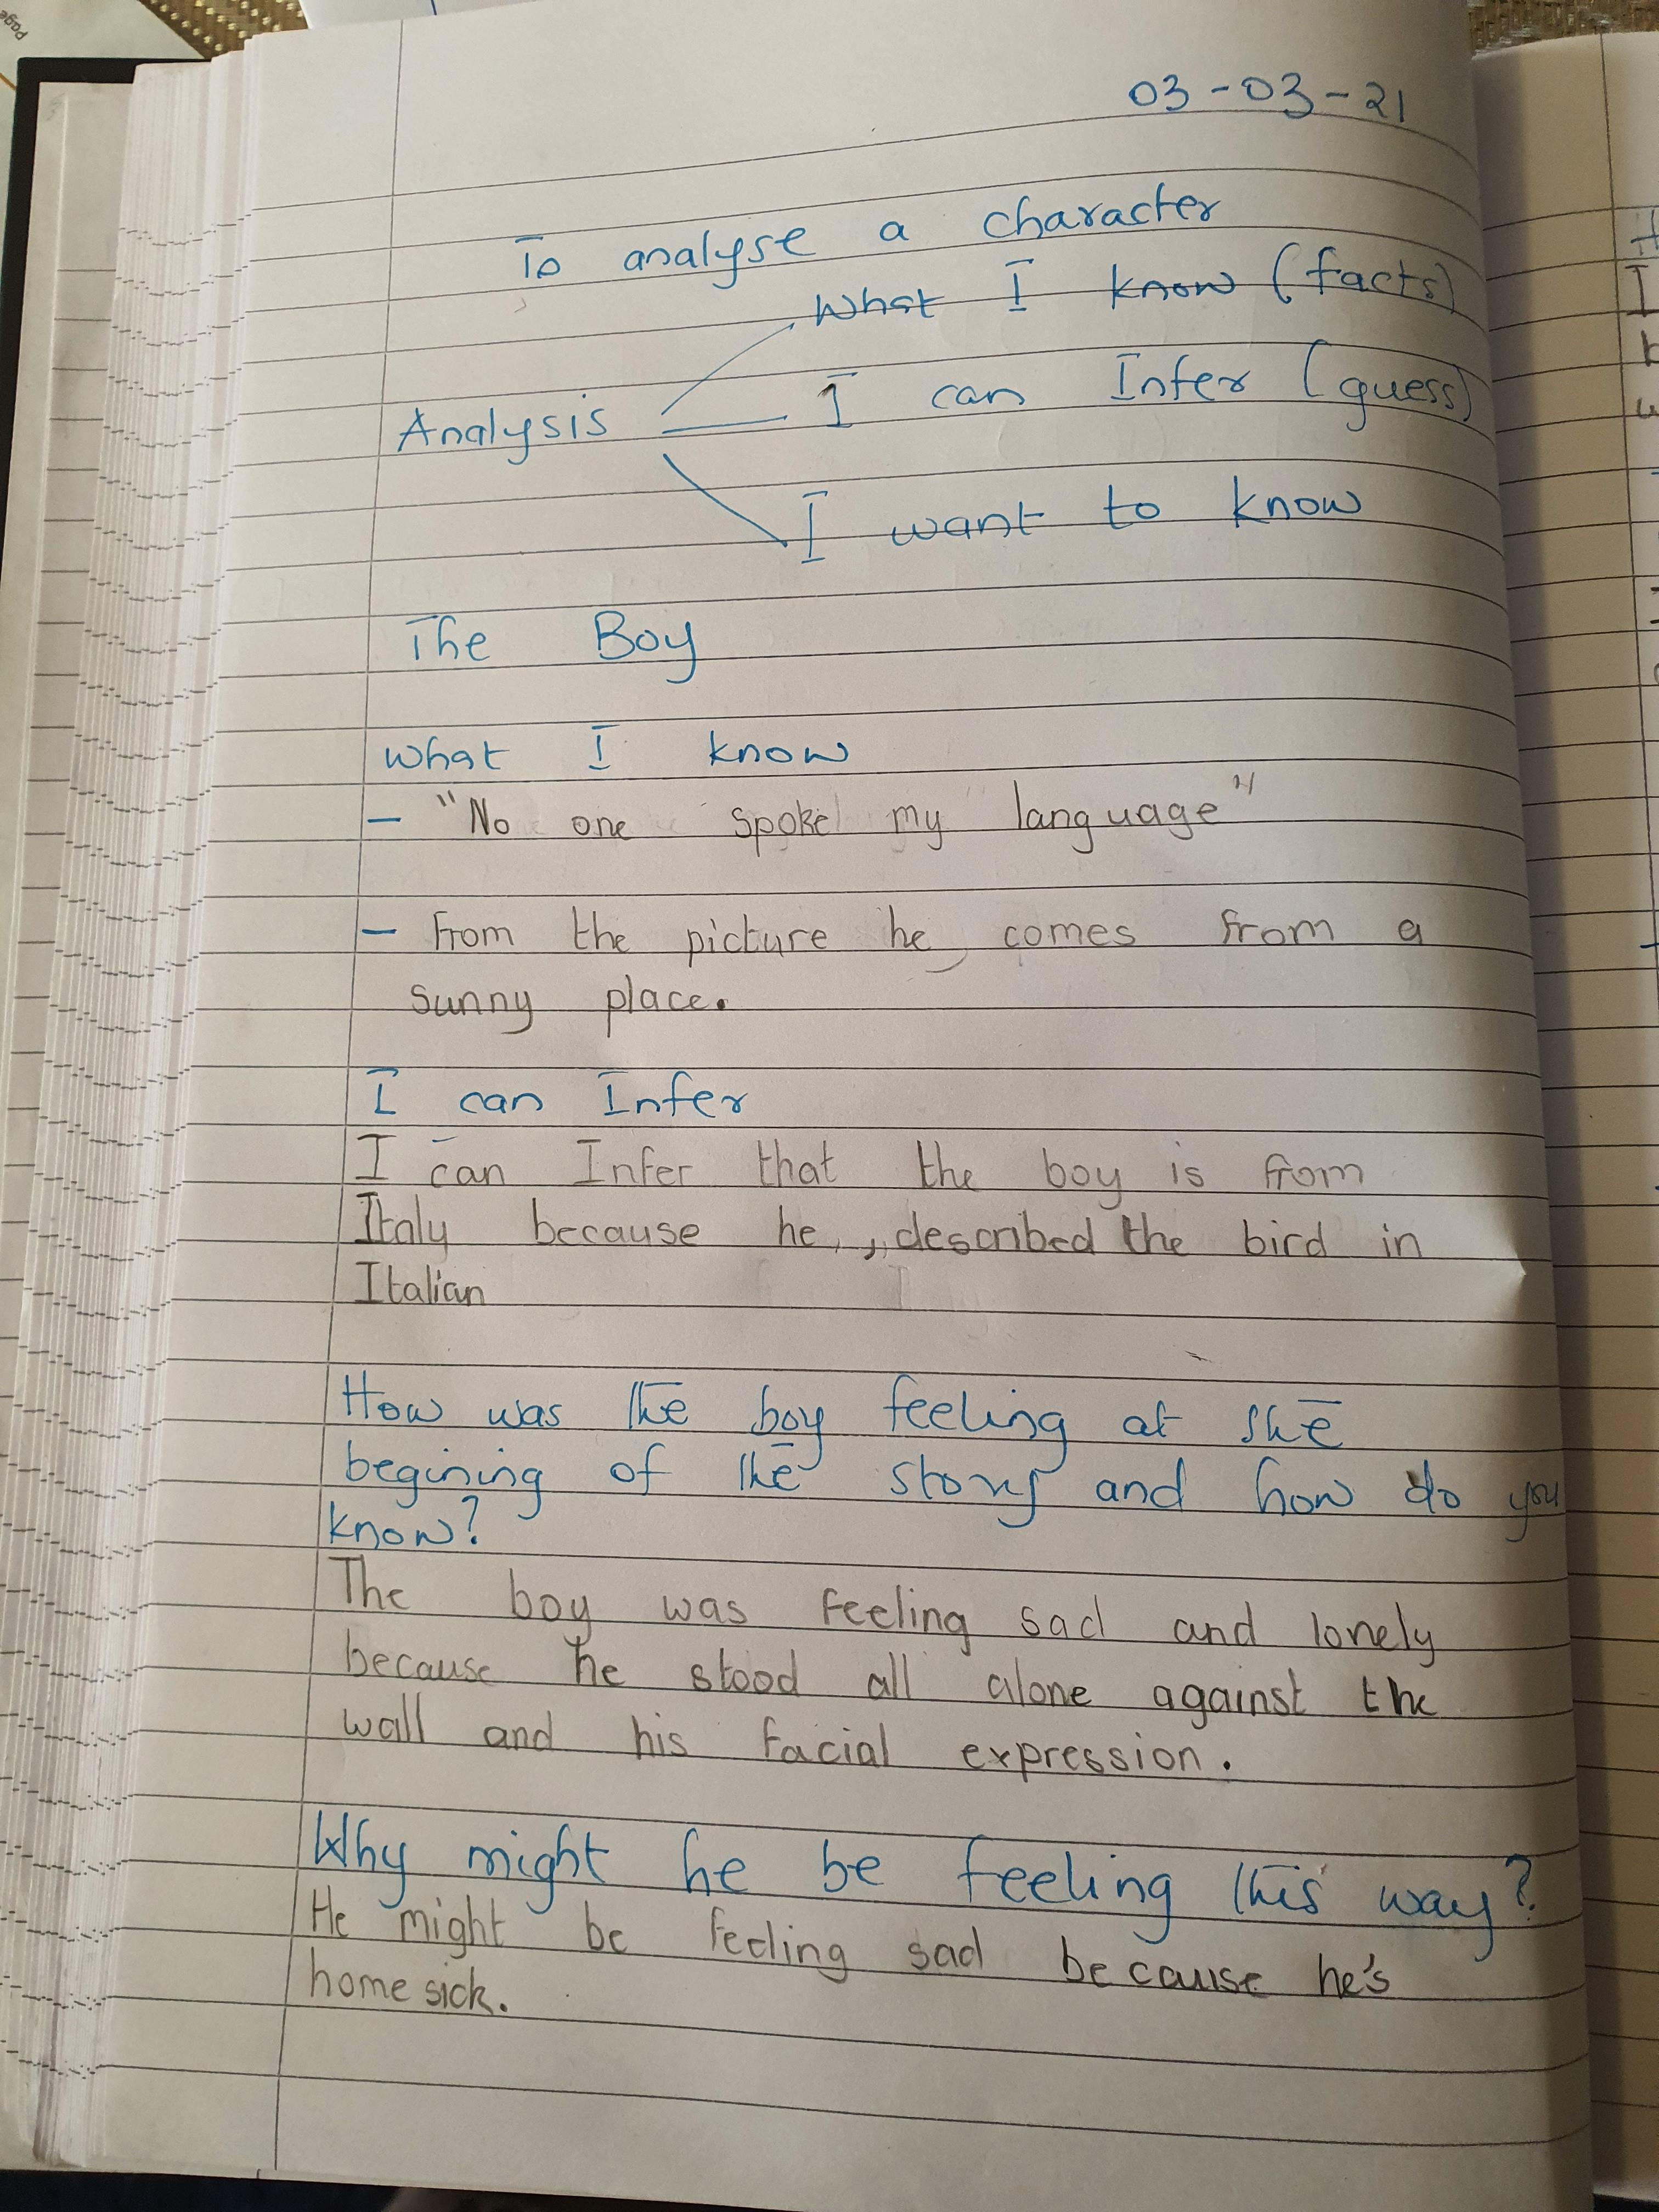 03-03-21
To analyse a character
What I know (facts)
Analysis I can Infer (guess)
I want to know
The Boy
what I know
- "No one spoke my language"
- From the picture he comes from a
sunny place.
I can Infer
I can Infer that the boy is from
Italy because he, described the bird in
Italian
How was the boy feeling at the
begining of the story and how do you
know?
The boy was feeling sad and lonely
because he stood all alone against the
wall and his facial expression.
Why might he be feeling this way?
He might be feeling sad because he's
home sick.
Page